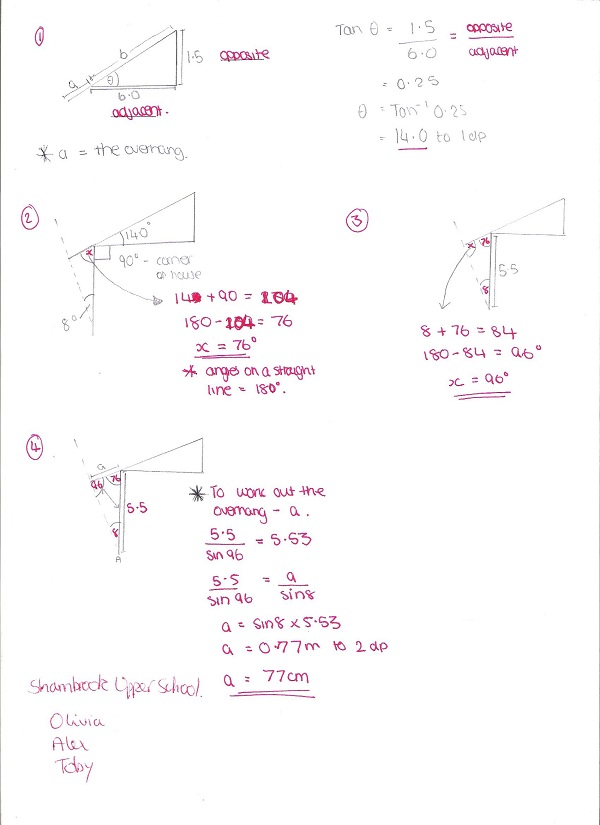 ①
b
1.5 opposite
a
θ
6.0
adjacent.
* a = the overhang.
Tan θ = 1.5 / 6.0 = opposite / adjacent
= 0.25
θ = Tan⁻¹ 0.25
= 14.0 to 1dp
②
14.0°
x
90° - corner
of house
8°
14 + 90 = 104
180 - 104 = 76
x = 76°
* angles on a straight
line = 180°.
③
x 76
5.5
8
8 + 76 = 84
180 - 84 = 96°
x = 96°
④
a
96 76
5.5
8
A
* To work out the
overhang - a.
5.5 / sin 96 = 5.53
5.5 / sin 96 = a / sin8
a = sin8 x 5.53
a = 0.77m to 2dp
a = 77cm
Sharnbrook Upper School.
Olivia
Alex
Toby